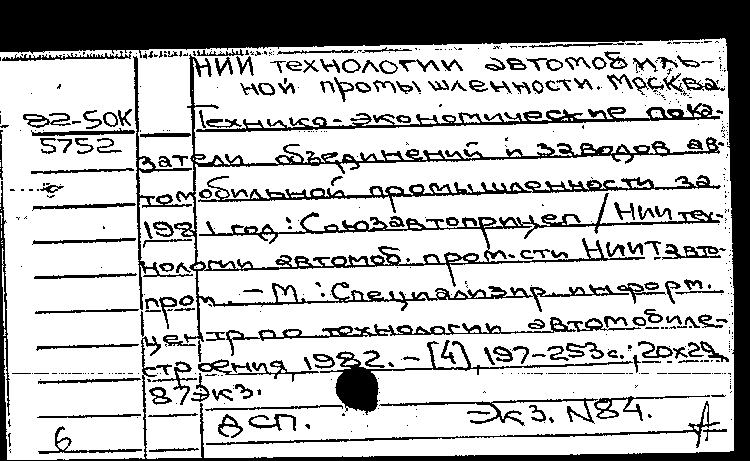 НИИ технологии автомобиль-
ной промышленности. Москва
82-50К
5752
Технико-экономические пока-
затели объединений и заводов ав-
томобильной промышленности за
1981 год: Союзавтоприцеп / НИИ тех-
нологии автомоб. пром-сти НИИТавто-
пром. - М.: Специализир. информ.
центр по технологии автомобиле-
строения, 1982. - [4], 197-253 с.; 20х29
87 экз.
ДСП. Экз. N84.
6
А